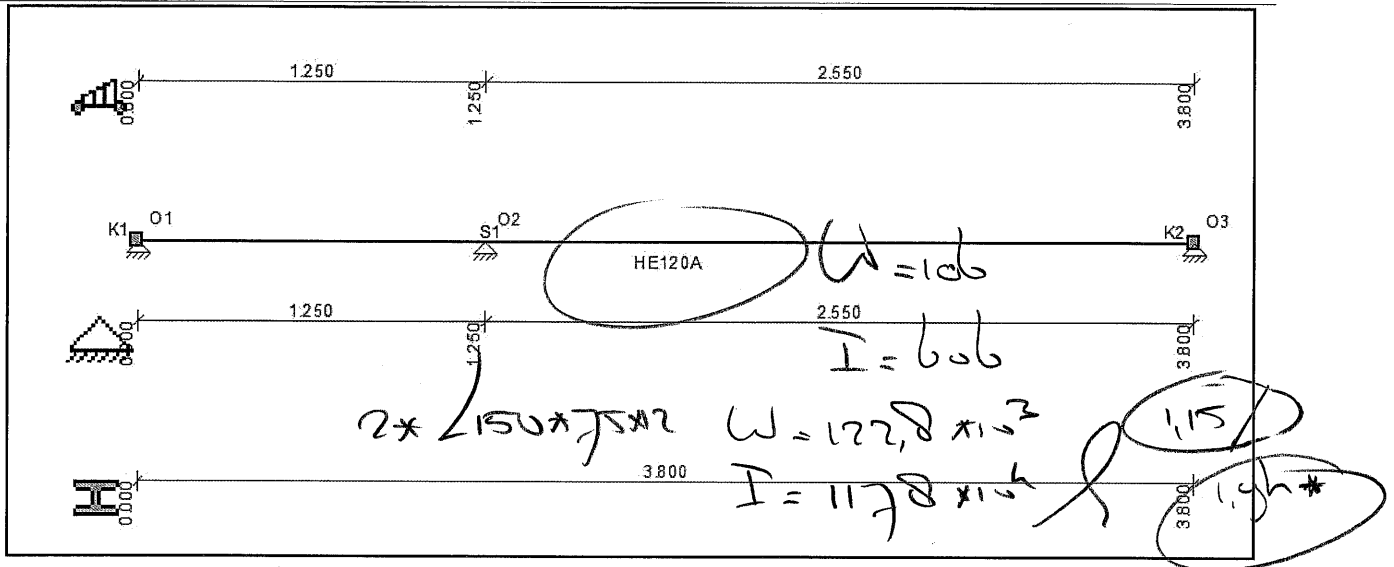 1.250 2.550
0.000 1.250 3.800
K1 O1 S1 O2 K2 O3
HE120A W = 106
1.250 2.550
0.000 1.250 3.800
I = 606
2* L150*75*12 W = 122,8 *10³ 1,15
3.800
0.000 I = 1178 *10⁴ 3.800 1,94 *